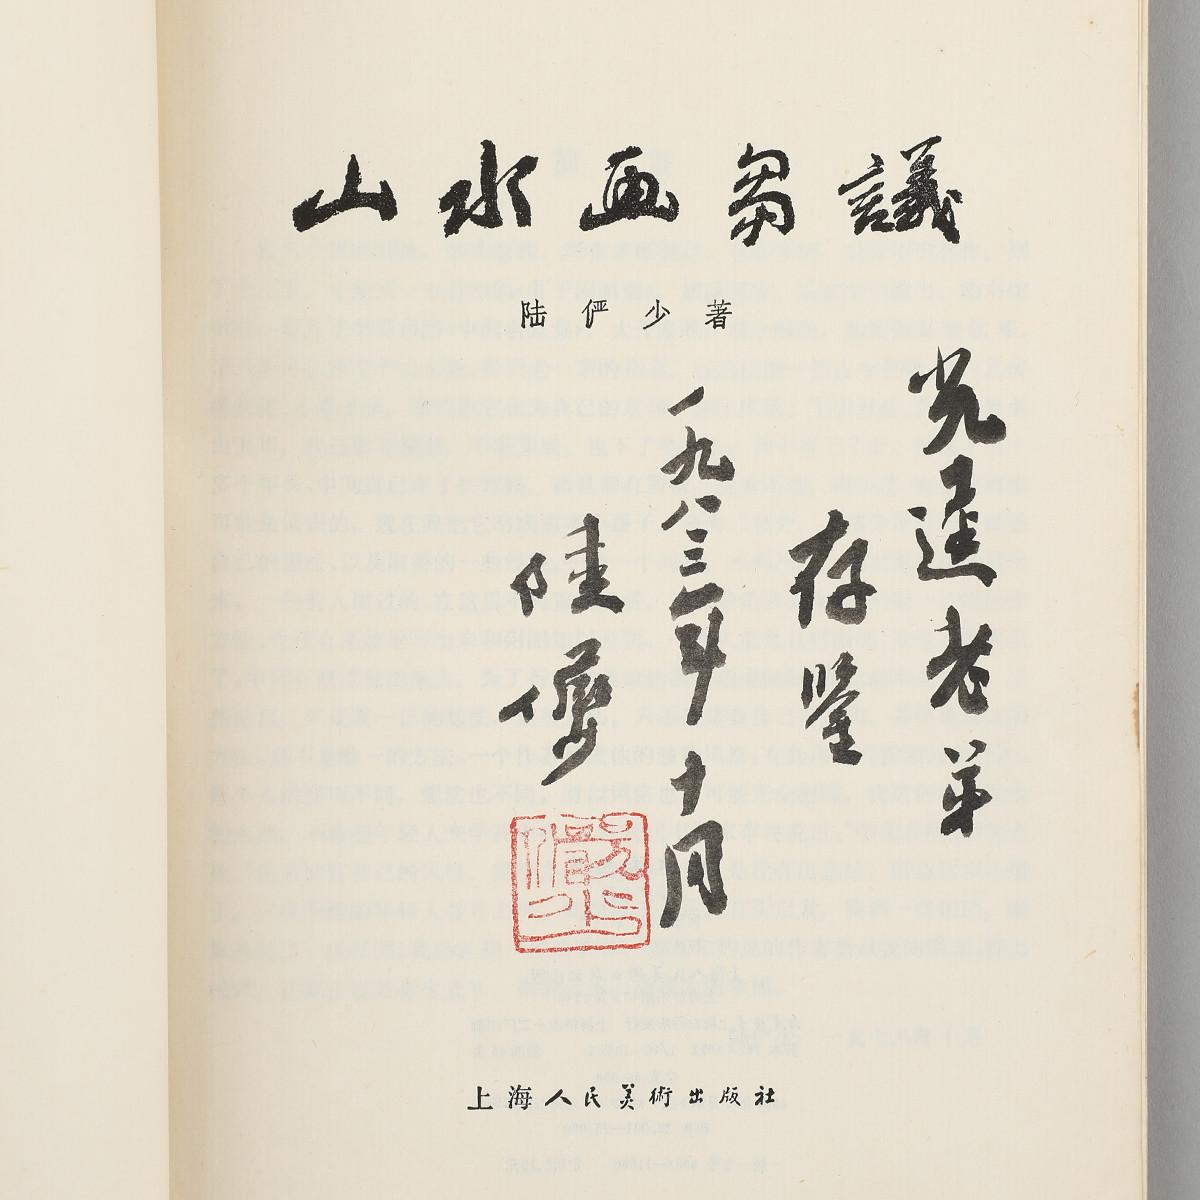 山水画芻議
陆俨少著
光逵老弟
存鑒
一九八三年十月
陸儼少
上海人民美術出版社